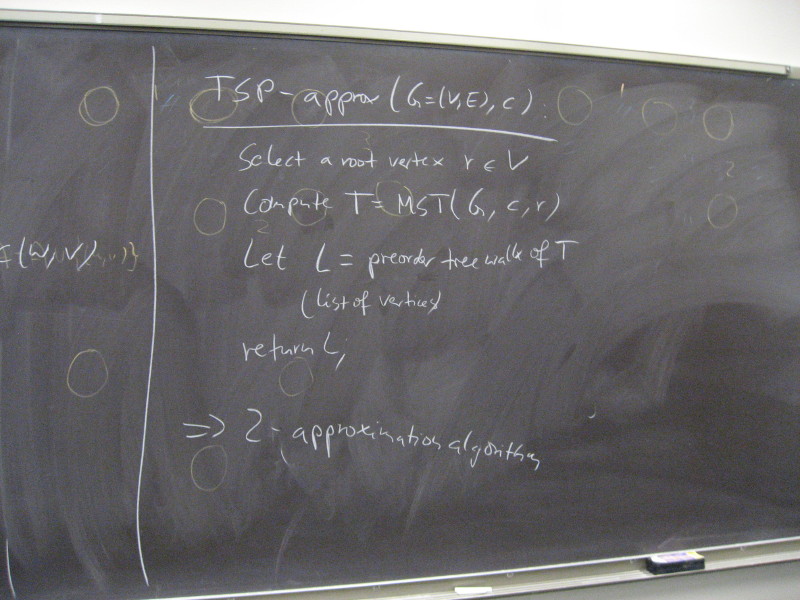 TSP-approx (G=(V,E), c):
Select a root vertex r ∈ V
Compute T = MST(G, c, r)
Let L = preorder tree walk of T
(list of vertices)
return L;
⇒ 2-approximation algorithm
(w,v)